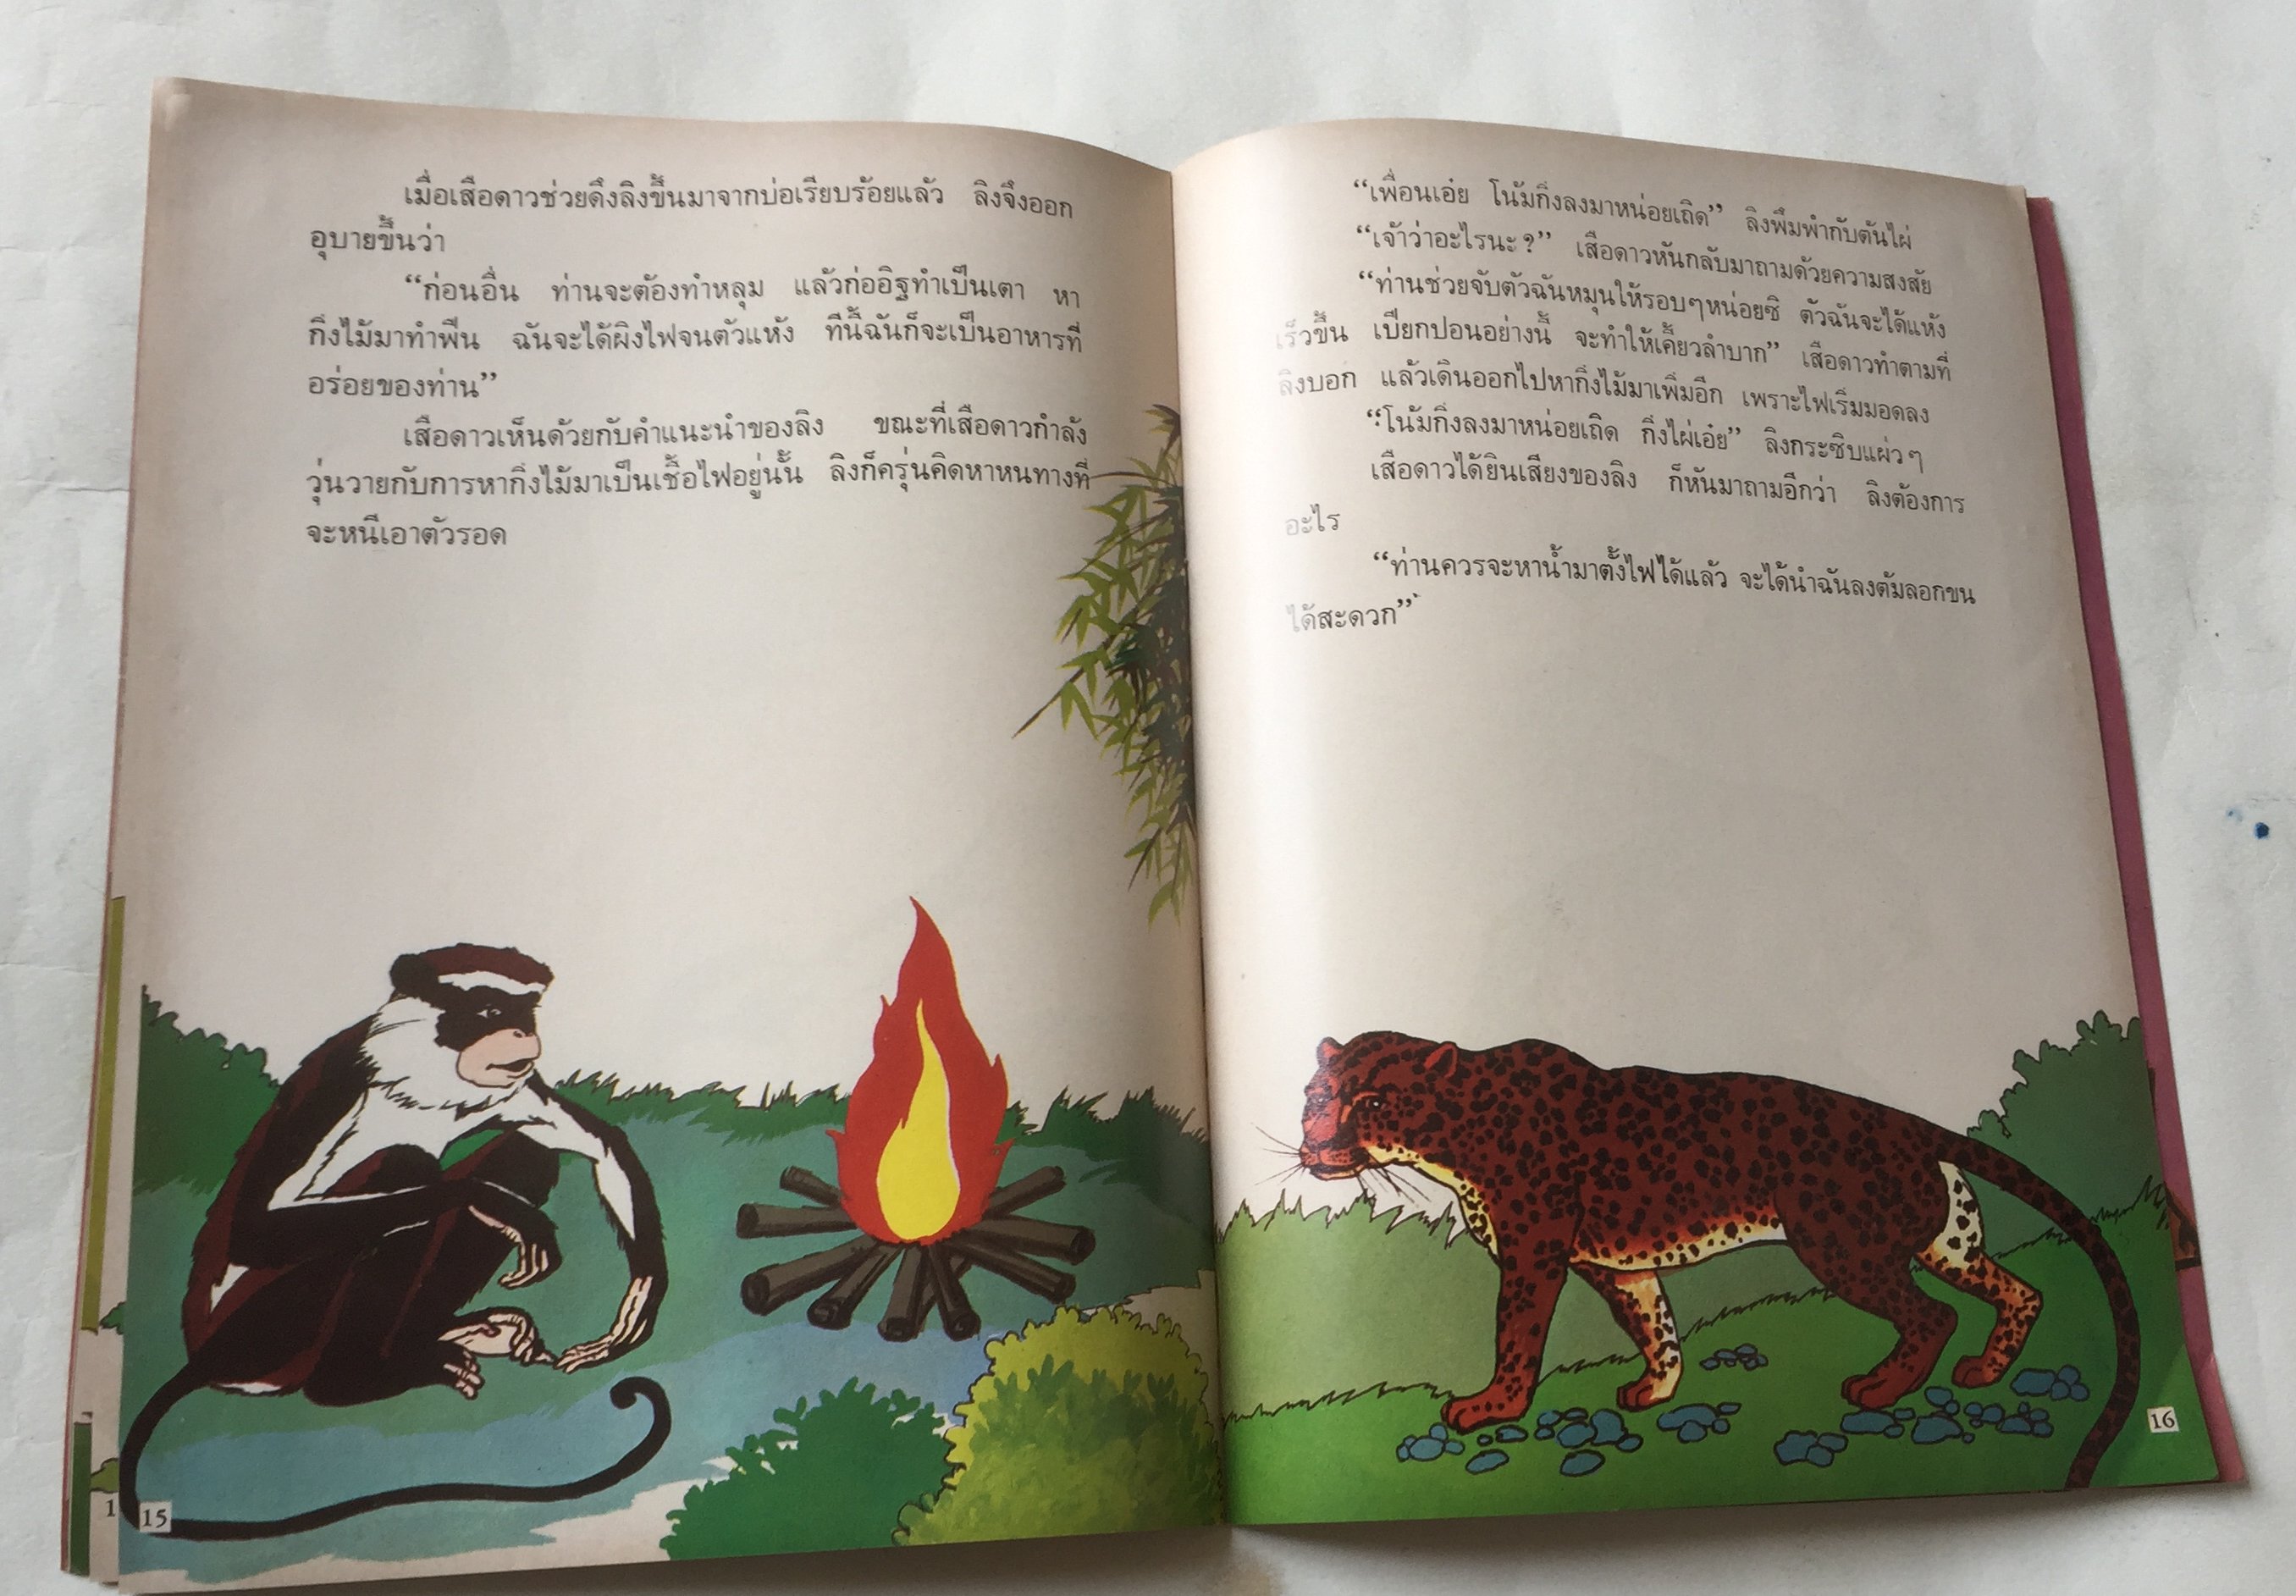 เมื่อเสือดาวช่วยดึงลิงขึ้นมาจากบ่อเรียบร้อยแล้ว ลิงจึงออก
อุบายขึ้นว่า
“ก่อนอื่น ท่านจะต้องทำหลุม แล้วก่ออิฐทำเป็นเตา หา
กิ่งไม้มาทำฟืน ฉันจะได้ผิงไฟจนตัวแห้ง ทีนี้ฉันก็จะเป็นอาหารที่
อร่อยของท่าน”
เสือดาวเห็นด้วยกับคำแนะนำของลิง ขณะที่เสือดาวกำลัง
วุ่นวายกับการหากิ่งไม้มาเป็นเชื้อไฟอยู่นั้น ลิงก็ครุ่นคิดหาหนทางที่
จะหนีเอาตัวรอด
1
15
“เพื่อนเอ๋ย โน้มกิ่งลงมาหน่อยเถิด” ลิงพึมพำกับต้นไผ่
“เจ้าว่าอะไรนะ?” เสือดาวหันกลับมาถามด้วยความสงสัย
“ท่านช่วยจับตัวฉันหมุนให้รอบๆหน่อยซิ ตัวฉันจะได้แห้ง
เร็วขึ้น เปียกปอนอย่างนี้ จะทำให้เคี้ยวลำบาก” เสือดาวทำตามที่
ลิงบอก แล้วเดินออกไปหากิ่งไม้มาเพิ่มอีก เพราะไฟเริ่มมอดลง
“โน้มกิ่งลงมาหน่อยเถิด กิ่งไผ่เอ๋ย” ลิงกระซิบแผ่วๆ
เสือดาวได้ยินเสียงของลิง ก็หันมาถามอีกว่า ลิงต้องการ
อะไร
“ท่านควรจะหาน้ำมาตั้งไฟได้แล้ว จะได้นำฉันลงต้มลอกขน
ได้สะดวก”
16